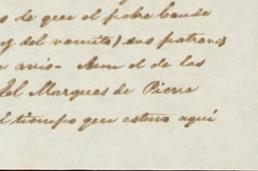 s de que el pobre Conde
y del vomito) dos patranas
avio- Aun el de las
el Marques de Pierre
el tiempo que estuvo aquí